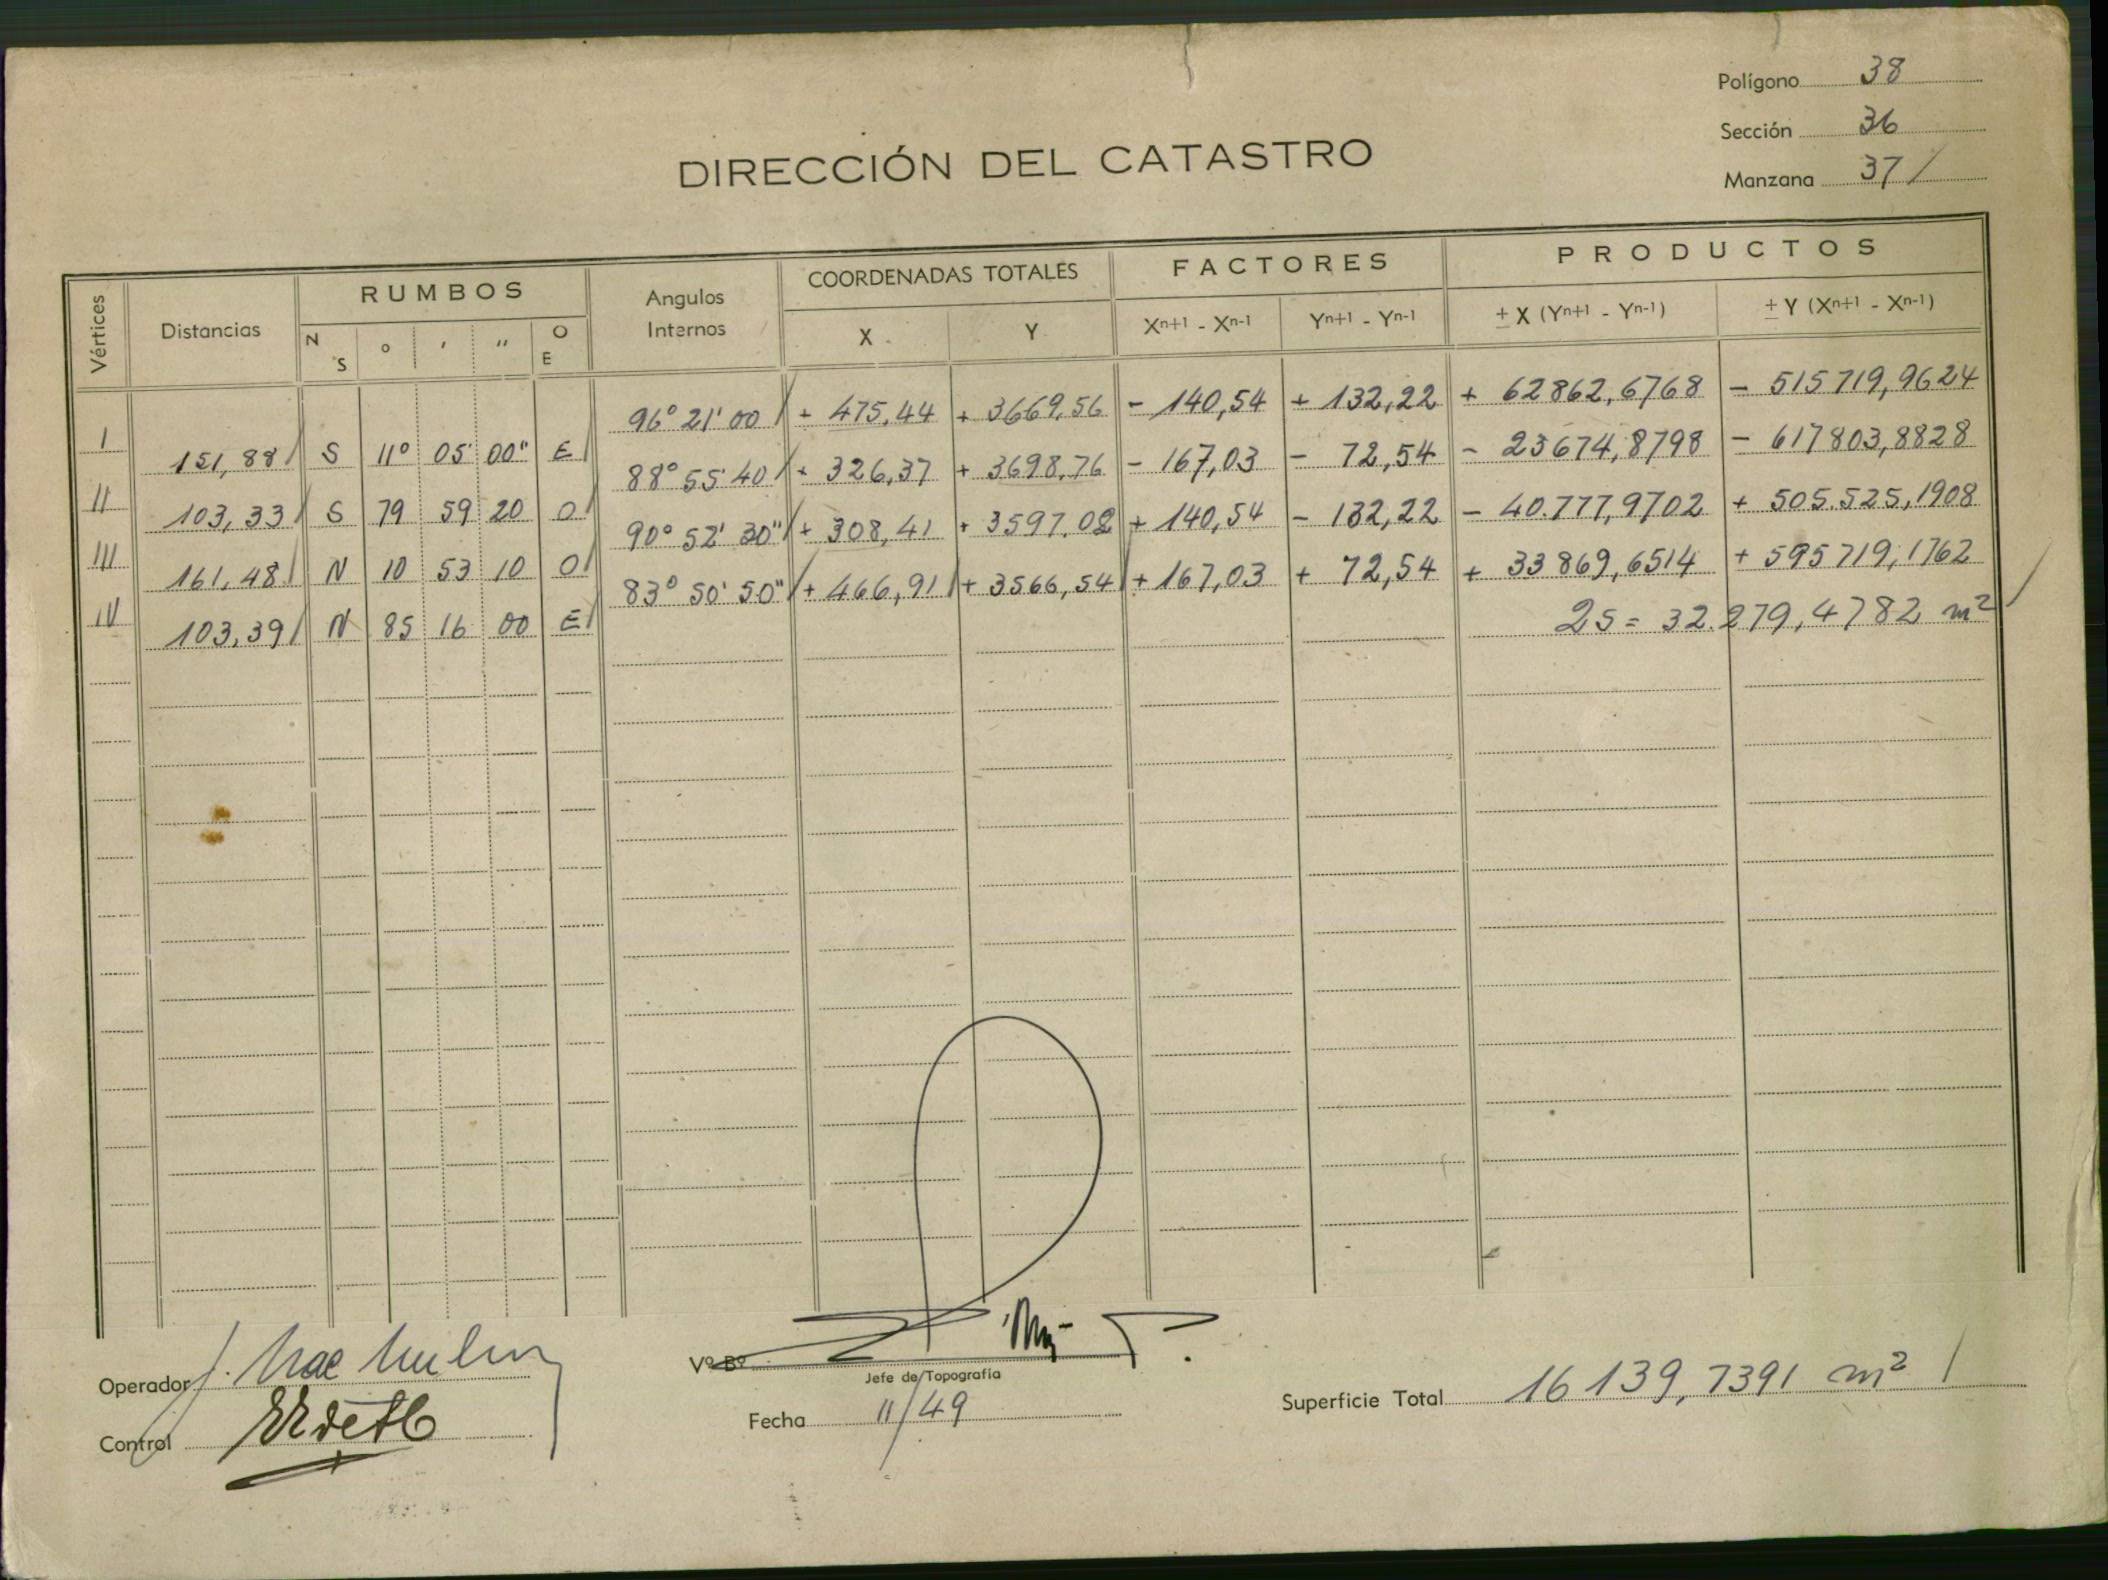 Polígono 38
Sección 36
Manzana 37 /
DIRECCIÓN DEL CATASTRO
Vértices Distancias RUMBOS Angulos Internos COORDENADAS TOTALES FACTORES PRODUCTOS
N S ° ' " O E X Y Xn+1 - Xn-1 Yn+1 - Yn-1 ± X (Yn+1 - Yn-1) ± Y (Xn+1 - Xn-1)
96° 21' 00 / + 475,44 + 3669,56 - 140,54 + 132,22 + 62862,6768 - 515719,9624
I 151,88 / S 11° 05' 00" E /
88° 55' 40 / + 326,37 + 3698,76 - 167,03 - 72,54 - 23674,8798 - 617803,8828
II 103,33 / S 79 59 20 O /
90° 52' 30" / + 308,41 + 3597,02 + 140,54 - 132,22 - 40.777,9702 + 505.525,1908
III 161,48 / N 10 53 10 O /
83° 50' 50" / + 466,91 / + 3566,54 / + 167,03 + 72,54 + 33869,6514 + 595719,1762
IV 103,39 / N 85 16 00 E /
2S = 32.279,4782 m² /
Operador
Vº Bº
Jefe de Topografía
Control
Fecha 11/49
Superficie Total 16139,7391 m² /